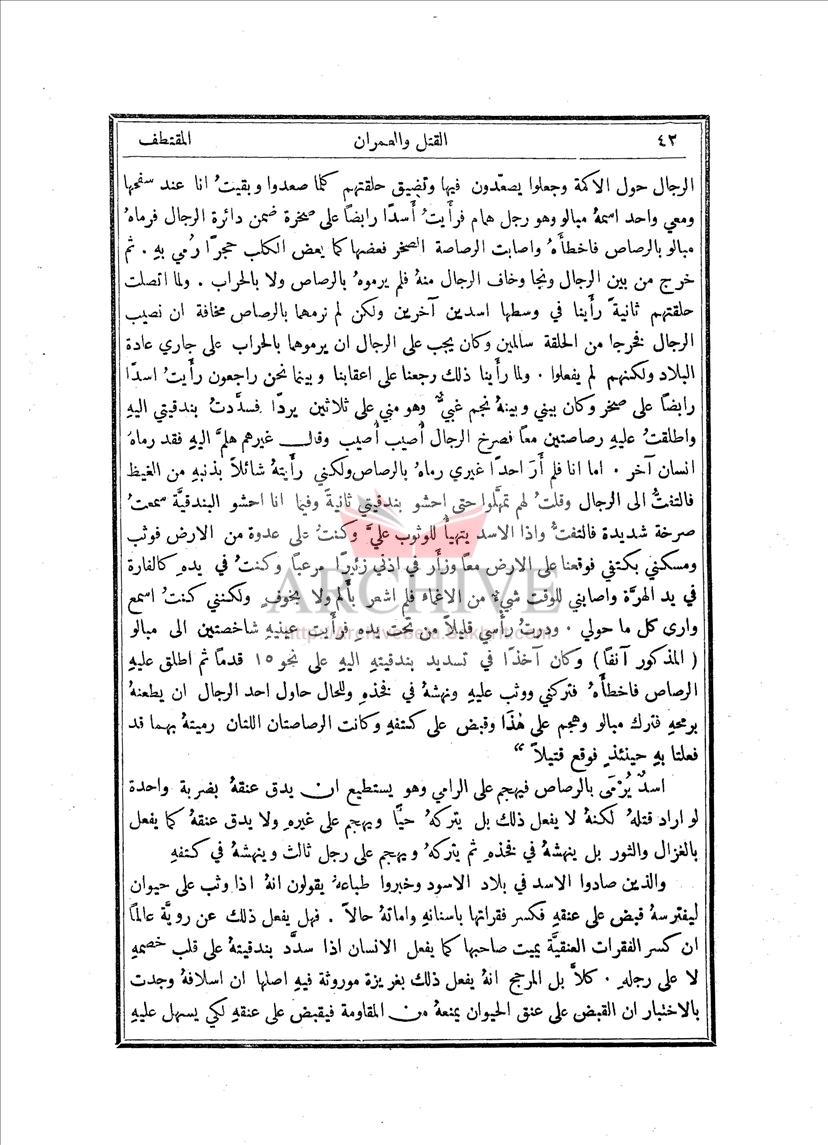 ٤٢ القتل والعمران المقتطف
الرجال حول الاكمة وجعلوا يصعّدون فيها وتضيق حلقتهم كلما صعدوا وبقيتُ انا عند سفحها
ومعي واحد اسمهُ مبالو وهو رجل همام فرأيتُ أسدًا رابضًا على صخرة ضمن دائرة الرجال فرماهُ
مبالو بالرصاص فاخطأَهُ واصابت الرصاصة الصخر فعضها كما يعض الكلب حجرًا رُمي بهِ . ثم
خرج من بين الرجال ونجا وخاف الرجال منهُ فلم يرموهُ بالرصاص ولا بالحراب . ولما اتصلت
حلقتهم ثانيةً رأَينا في وسطها اسدين آخرين ولكن لم نرمهما بالرصاص مخافة ان نصيب
الرجال فخرجا من الحلقة سالمين وكان يجب على الرجال ان يرموهما بالحراب على جاري عادة
البلاد ولكنهم لم يفعلوا . ولما رأَينا ذلك رجعنا على اعقابنا وبينما نحن راجعون رأَيتُ اسدًا
رابضًا على صخر وكان بيني وبينهُ نجم غبيٌّ وهو مني على ثلاثين يردًا فسدَّدتُ بندقيتي اليهِ
واطلقتُ عليهِ رصاصتين معًا فصرخ الرجال أُصيب أُصيب وقال غيرهم هلمَّ اليهِ فقد رماهُ
انسان آخر . اما انا فلم أَرَ احدًا غيري رماهُ بالرصاص ولكني رأَيتهُ شائلاً بذنبهِ من الغيظ
فالتفتُّ الى الرجال وقلتُ لهم تمهَّلوا حتى احشو بندقيتي ثانيةً وفيما انا احشو البندقيَّة سمعتُ
صرخة شديدة فالتفتُّ واذا الاسد يتهيأُ للوثوب عليَّ وكنتُ على عدوة من الارض فوثب
ومسكني بكتفي فوقعنا على الارض معًا وزأَر في اذني زئيرًا مرعبًا وكنتُ في يدهِ كالفارة
في يد الهرَّة واصابني للوقت شيءٌ من الاغماء فلم اشعر بأَلم ولا بخوفٍ ولكنني كنتُ اسمع
وارى كل ما حولي . ودرتُ رأسي قليلاً من تحت يدهِ فرأَيت عينيهِ شاخصتين الى مبالو
( المذكور آنفًا ) وكان آخذًا في تسديد بندقيتهِ اليهِ على نحو ١٥ قدمًا ثم اطلق عليهِ
الرصاص فاخطأَهُ فتركني ووثب عليهِ ونهشهُ في فخذهِ وللحال حاول احد الرجال ان يطعنهُ
برمحهِ فترك مبالو وهجم على هٰذَا وقبض على كتفهِ وكانت الرصاصتان اللتان رميتهُ بهما قد
فعلتا بهِ حينئذٍ فوقع قتيلاً “
اسدٌ يُرْمَى بالرصاص فيهجم على الرامي وهو يستطيع ان يدق عنقهُ بضربة واحدة
لو اراد قتلهُ لكنهُ لا يفعل ذلك بل يتركهُ حيًّا ويهجم على غيرهِ ولا يدق عنقهُ كما يفعل
بالغزال والثور بل ينهشهُ في فخذهِ ثم يتركهُ ويهجم على رجل ثالث وينهشهُ في كتفهِ
والذين صادوا الاسد في بلاد الاسود وخبروا طباعهُ يقولون انهُ اذا وثب على حيوان
ليفترسهُ قبض على عنقهِ فكسر فقراتها باسنانهِ واماتهُ حالاً . فهل يفعل ذلك عن رويَّة عالمًا
ان كسر الفقرات العنقيَّة يميت صاحبها كما يفعل الانسان اذا سدَّد بندقيتهُ على قلب خصمهِ
لا على رجلهِ . كلاَّ بل المرجح انهُ يفعل ذلك بغريزة موروثة فيهِ اصلها ان اسلافهُ وجدت
بالاختبار ان القبض على عنق الحيوان يمنعهُ من المقاومة فيقبض على عنقهِ لكي يسهل عليهِ
ARCHIVE